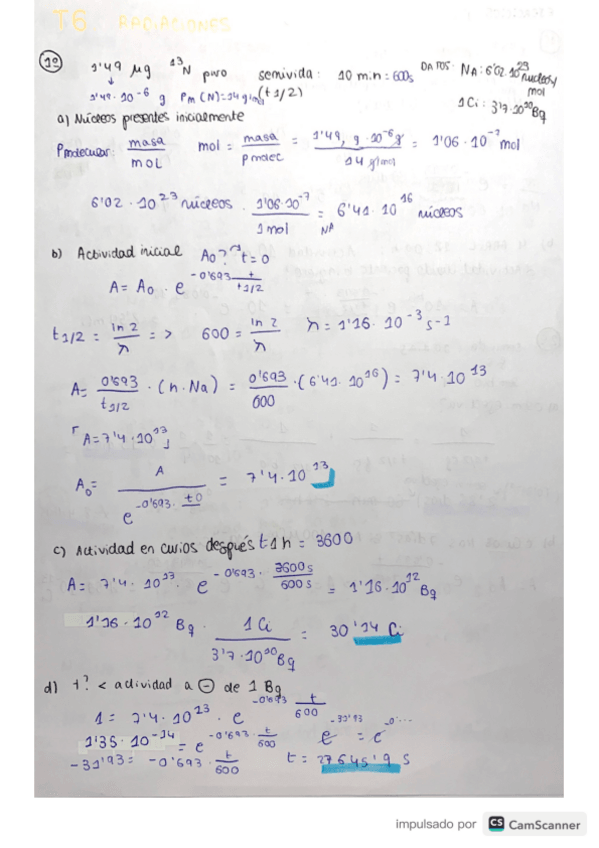 T6. RADIACIONES
1º 1'49 µg ¹³N puro semivida: 10 min = 600s DATOS: NA: 6'02·10²³ nucleos/mol
1'49·10⁻⁶ g Pm (N)=14 g/mol (t1/2) 1Ci: 3'7·10¹⁰ Bq
a) Núcleos presentes inicialmente
Pmolecular: masa/mol mol = masa/pmolec = 1'49, g·10⁻⁶g/14 g/mol = 1'06·10⁻⁷ mol
6'02·10²³ núcleos · 1'06·10⁻⁷/1 mol = 6'41·10¹⁶ núcleos
NA
b) Actividad inicial A0? t=0
A = A0 · e^-0'693 t/t1/2
t1/2 = ln 2/λ => 600 = ln 2/λ λ = 1'16·10⁻³ s-1
A = 0'693/t1/2 · (n·Na) = 0'693/600 · (6'41·10¹⁶) = 7'4·10¹³
A = 7'4·10¹³
A0 = A/e^-0'693·t0 = 7'4·10¹³
c) Actividad en curios después t 1h = 3600
A = 7'4·10¹³· e^-0'693·3600s/600s = 1'16·10¹² Bq
1'16·10¹² Bq · 1 Ci/3'7·10¹⁰ Bq = 30'14 Ci
d) t? < actividad a ⊖ de 1 Bq
1 = 7'4·10¹³· e^-0'693 t/600
1'35·10⁻¹⁴ = e^-0'693·t/600 e^-31'93 = e^-0'...
-31'93 = -0'693·t/600 t = 27645'9 s
impulsado por CS CamScanner